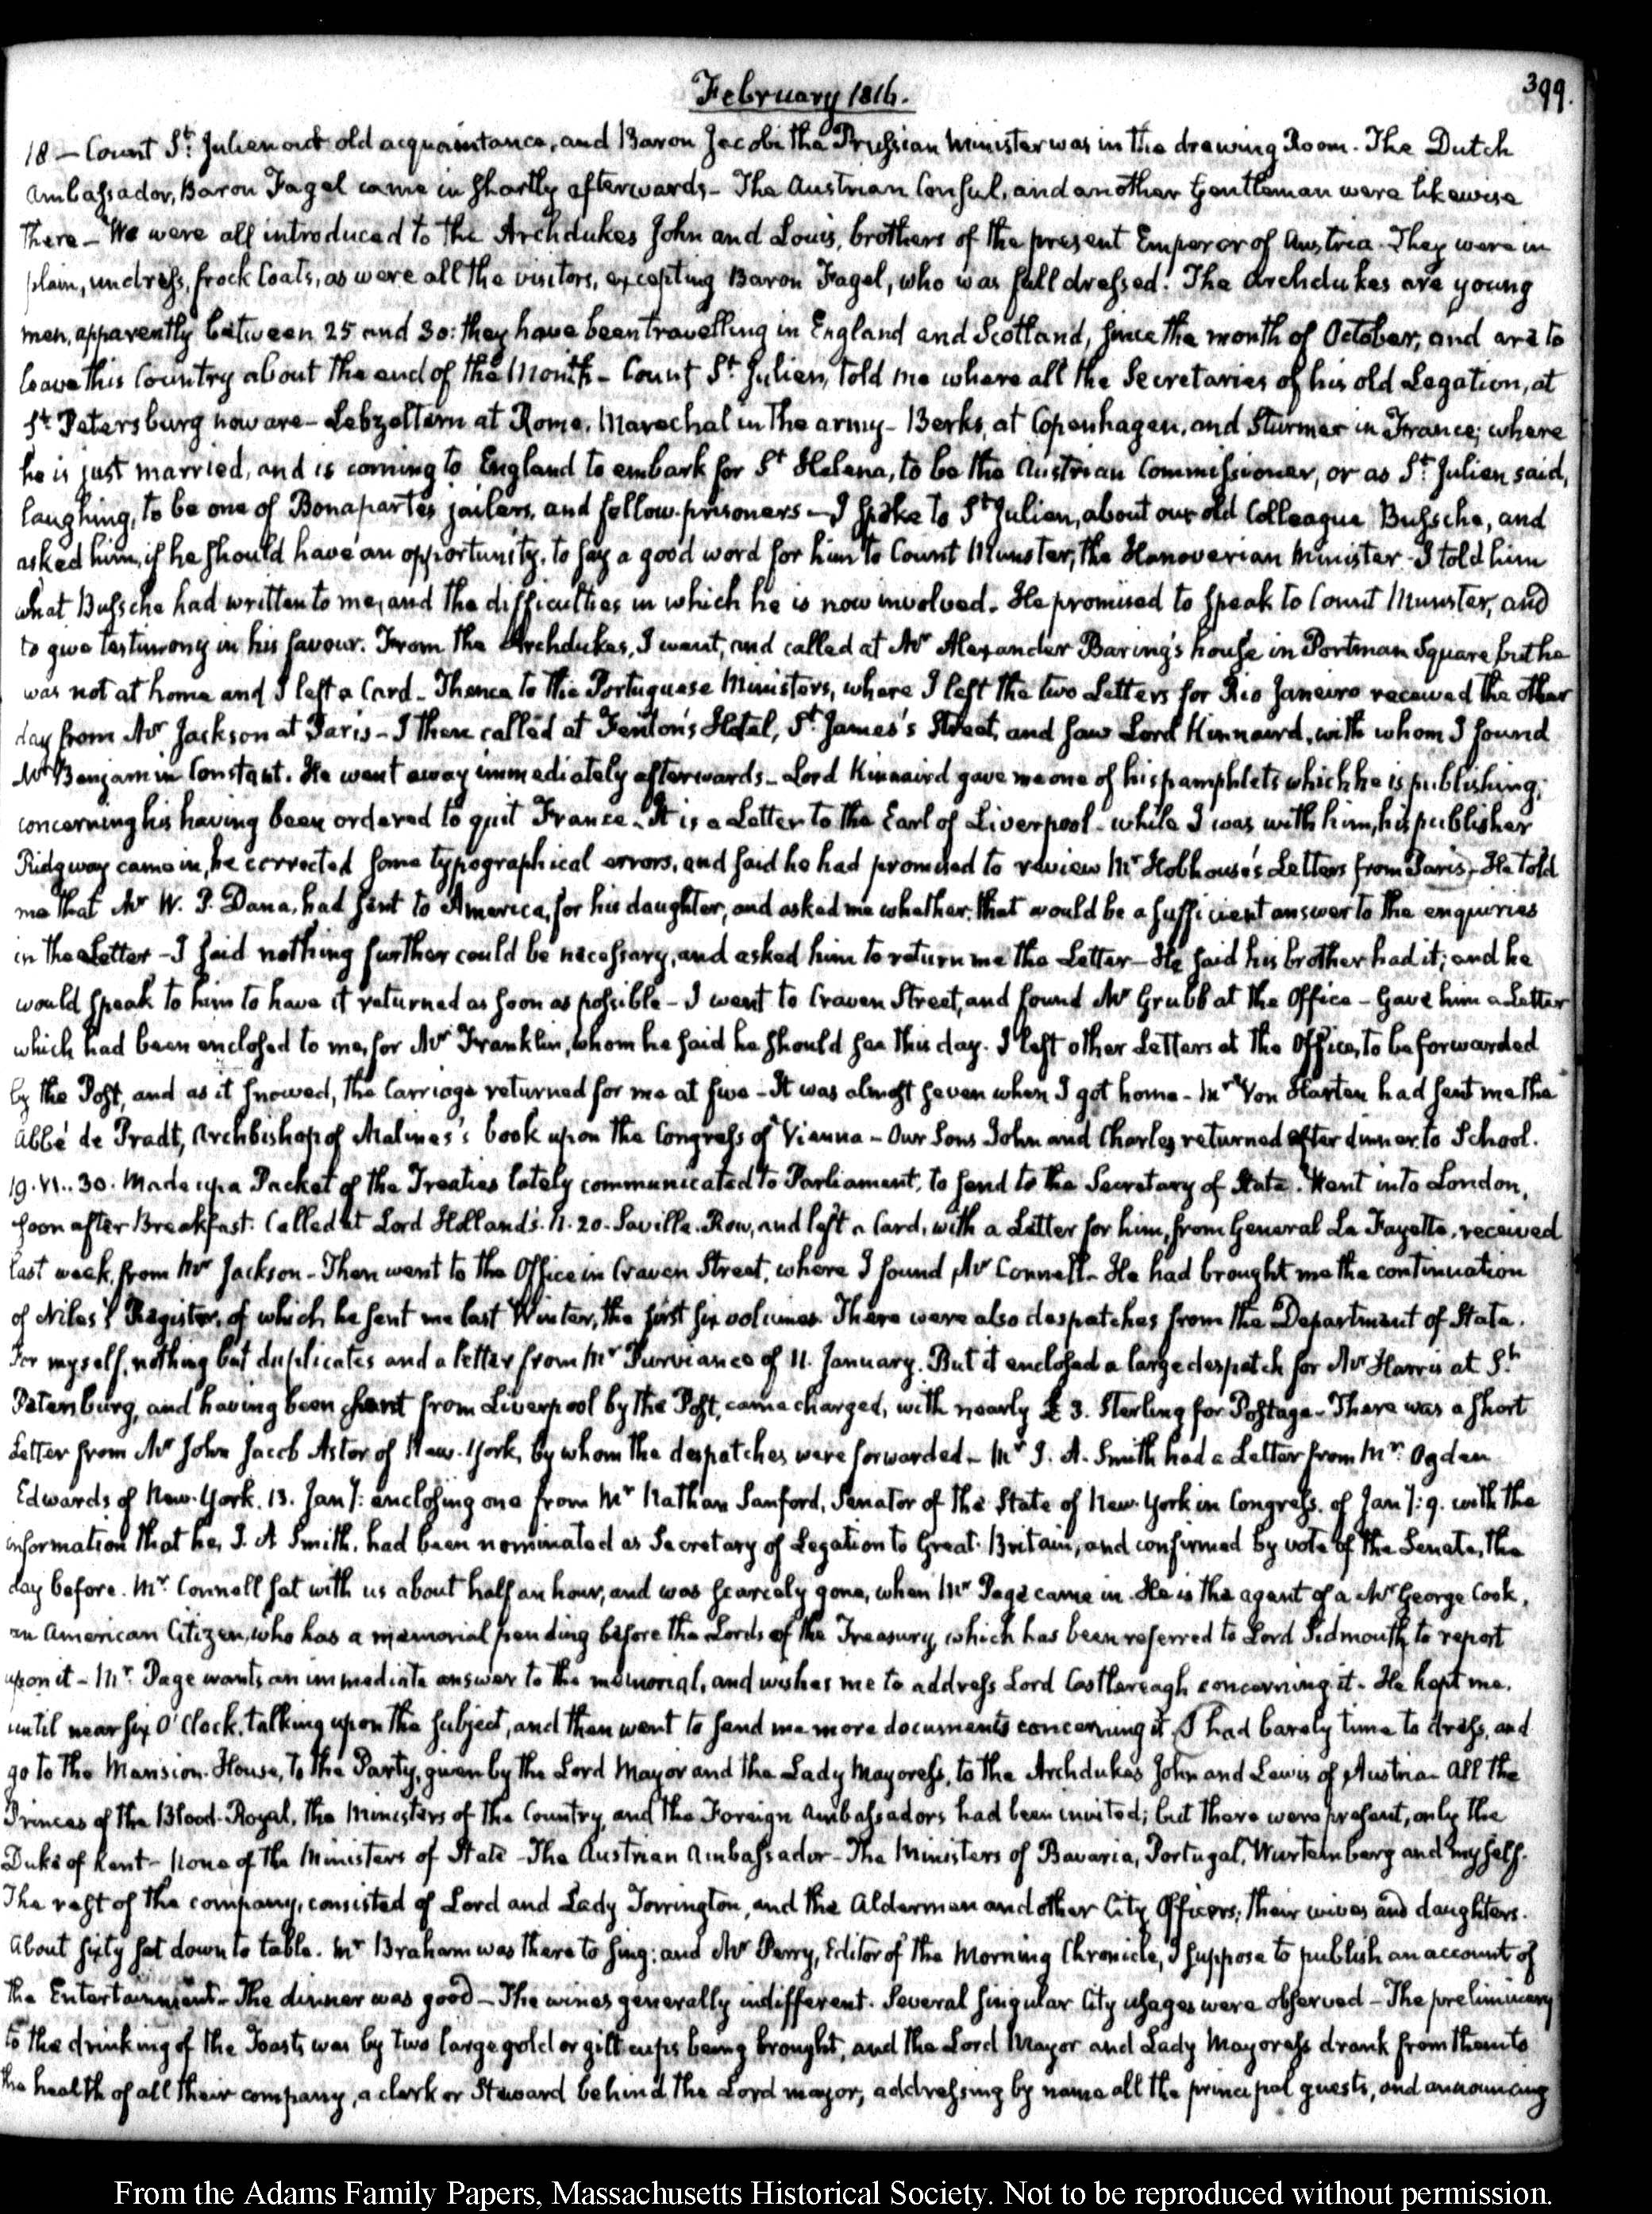 February 1816.
399.
18 — Count St. Julien our old acquaintance, and Baron Jacobi the Prussian Minister was in the drawing Room. The Dutch
Ambassador, Baron Fagel came in shortly afterwards — The Austrian Consul, and another Gentleman were likewise
there — We were all introduced to the Archdukes John and Louis, brothers of the present Emperor of Austria. They were in
plain, undress, frock Coats, as were all the visitors, excepting Baron Fagel, who was full dressed. The Archdukes are young
men, apparently between 25 and 30: they have been travelling in England and Scotland, since the month of October, and are to
leave this Country about the end of the Month — Count St. Julien, told me where all the Secretaries of his old Legation, at
St. Petersburg now are — Lebzeltern at Rome. Marechal in the army — Berks, at Copenhagen, and Sturmer in France; where
he is just married, and is coming to England to embark for St Helena, to be the Austrian Commissioner, or as St. Julien said,
laughing, to be one of Bonaparte's jailers, and fellow-prisoners — I spoke to St Julien, about our old Colleague Bussche, and
asked him, if he should have an opportunity, to say a good word for him to Count Munster, the Hanoverian Minister — I told him
what Bussche had written to me, and the difficulties in which he is now involved. He promised to speak to Count Munster, and
to give testimony in his favour. From the Archdukes, I went, and called at Mr Alexander Baring's house in Portman Square but he
was not at home and I left a Card — Thence to the Portuguese Ministers, where I left the two Letters for Rio Janeiro received the other
day from Mr Jackson at Paris — I then called at Fenton's Hotel, St. James's Street, and saw Lord Kinnaird, with whom I found
Mr Benjamin Constant. He went away immediately afterwards — Lord Kinnaird gave me one of his pamphlets which he is publishing,
concerning his having been ordered to quit France — It is a Letter to the Earl of Liverpool — while I was with him, his publisher
Ridgway came in, he corrected some typographical errors, and said he had promised to review Mr Hobhouse's Letters from Paris — He told
me that Mr W. P. Dana, had sent to America, for his daughter, and asked me whether that would be a sufficient answer to the enquiries
in the Letter — I said nothing further could be necessary, and asked him to return me the Letter — He said his brother had it; and he
would speak to him to have it returned as soon as possible — I went to Craven Street, and found Mr Grubb at the Office — Gave him a Letter
which had been enclosed to me, for Mr Franklin, whom he said he should see this day. I left other Letters at the Office, to be forwarded
by the Post, and as it snowed, the Carriage returned for me at five — It was almost seven when I got home — Mr Von Harten had sent me the
Abbé de Pradt, Archbishop of Malines's book upon the Congress of Vienna — Our Sons John and Charles returned after dinner to School.
19. VI.. 30. Made up a Packet of the Treaties lately communicated to Parliament, to send to the Secretary of State. Went into London,
soon after Breakfast. Called at Lord Holland's. N. 20. Saville. Row, and left a Card, with a Letter for him, from General La Fayette, received
last week, from Mr Jackson — Then went to the Office in Craven Street, where I found Mr Connell — He had brought me the continuation
of Niles's Register, of which he sent me last Winter, the first six volumes. There were also despatches from the Department of State.
For myself, nothing but duplicates and a letter from Mr Purviance of 11. January. But it enclosed a large despatch for Mr Harris at St.
Petersburg, and having been sent from Liverpool by the Post, came charged, with nearly £ 3. Sterling for Postage — There was a short
Letter from Mr John Jacob Astor of New-York, by whom the despatches were forwarded — Mr J. A. Smith had a Letter from Mr. Ogden
Edwards of New-York. 13. Jany: enclosing one from Mr Nathan Sanford, Senator of the State of New York in Congress, of Jany: 9. with the
information that he, J. A Smith, had been nominated as Secretary of Legation to Great-Britain, and confirmed by vote of the Senate, the
day before. Mr. Connell sat with us about half an hour, and was scarcely gone, when Mr Page came in. He is the agent of a Mr George Cook,
an American Citizen, who has a memorial pending before the Lords of the Treasury, which has been referred to Lord Sidmouth to report
upon it — Mr. Page wants an immediate answer to the memorial, and wishes me to address Lord Castlereagh concerning it — He kept me,
until near six O'Clock, talking upon the subject, and then went to send me more documents concerning it. I had barely time to dress, and
go to the Mansion-House, to the Party, given by the Lord Mayor and the Lady Mayoress, to the Archdukes John and Lewis of Austria — All the
Princes of the Blood-Royal, the Ministers of the Country, and the Foreign Ambassadors had been invited; but there were present, only the
Duke of Kent — None of the Ministers of State — The Austrian Ambassador — The Ministers of Bavaria, Portugal, Wurtemberg and myself.
The rest of the company, consisted of Lord and Lady Torrington, and the Aldermen and other City Officers; their wives and daughters.
About sixty sat down to table. Mr Braham was there to sing; and Mr Perry, Editor of the Morning Chronicle, I suppose to publish an account of
the Entertainment — The dinner was good — The wines generally indifferent. Several singular City usages were observed — The preliminary
to the drinking of the Toasts was by two large gold or gilt cups being brought, and the Lord Mayor and Lady Mayoress drank from them to
the health of all their company, a clerk or Steward behind the Lord mayor, addressing by name all the principal guests, and announcing
From the Adams Family Papers, Massachusetts Historical Society. Not to be reproduced without permission.